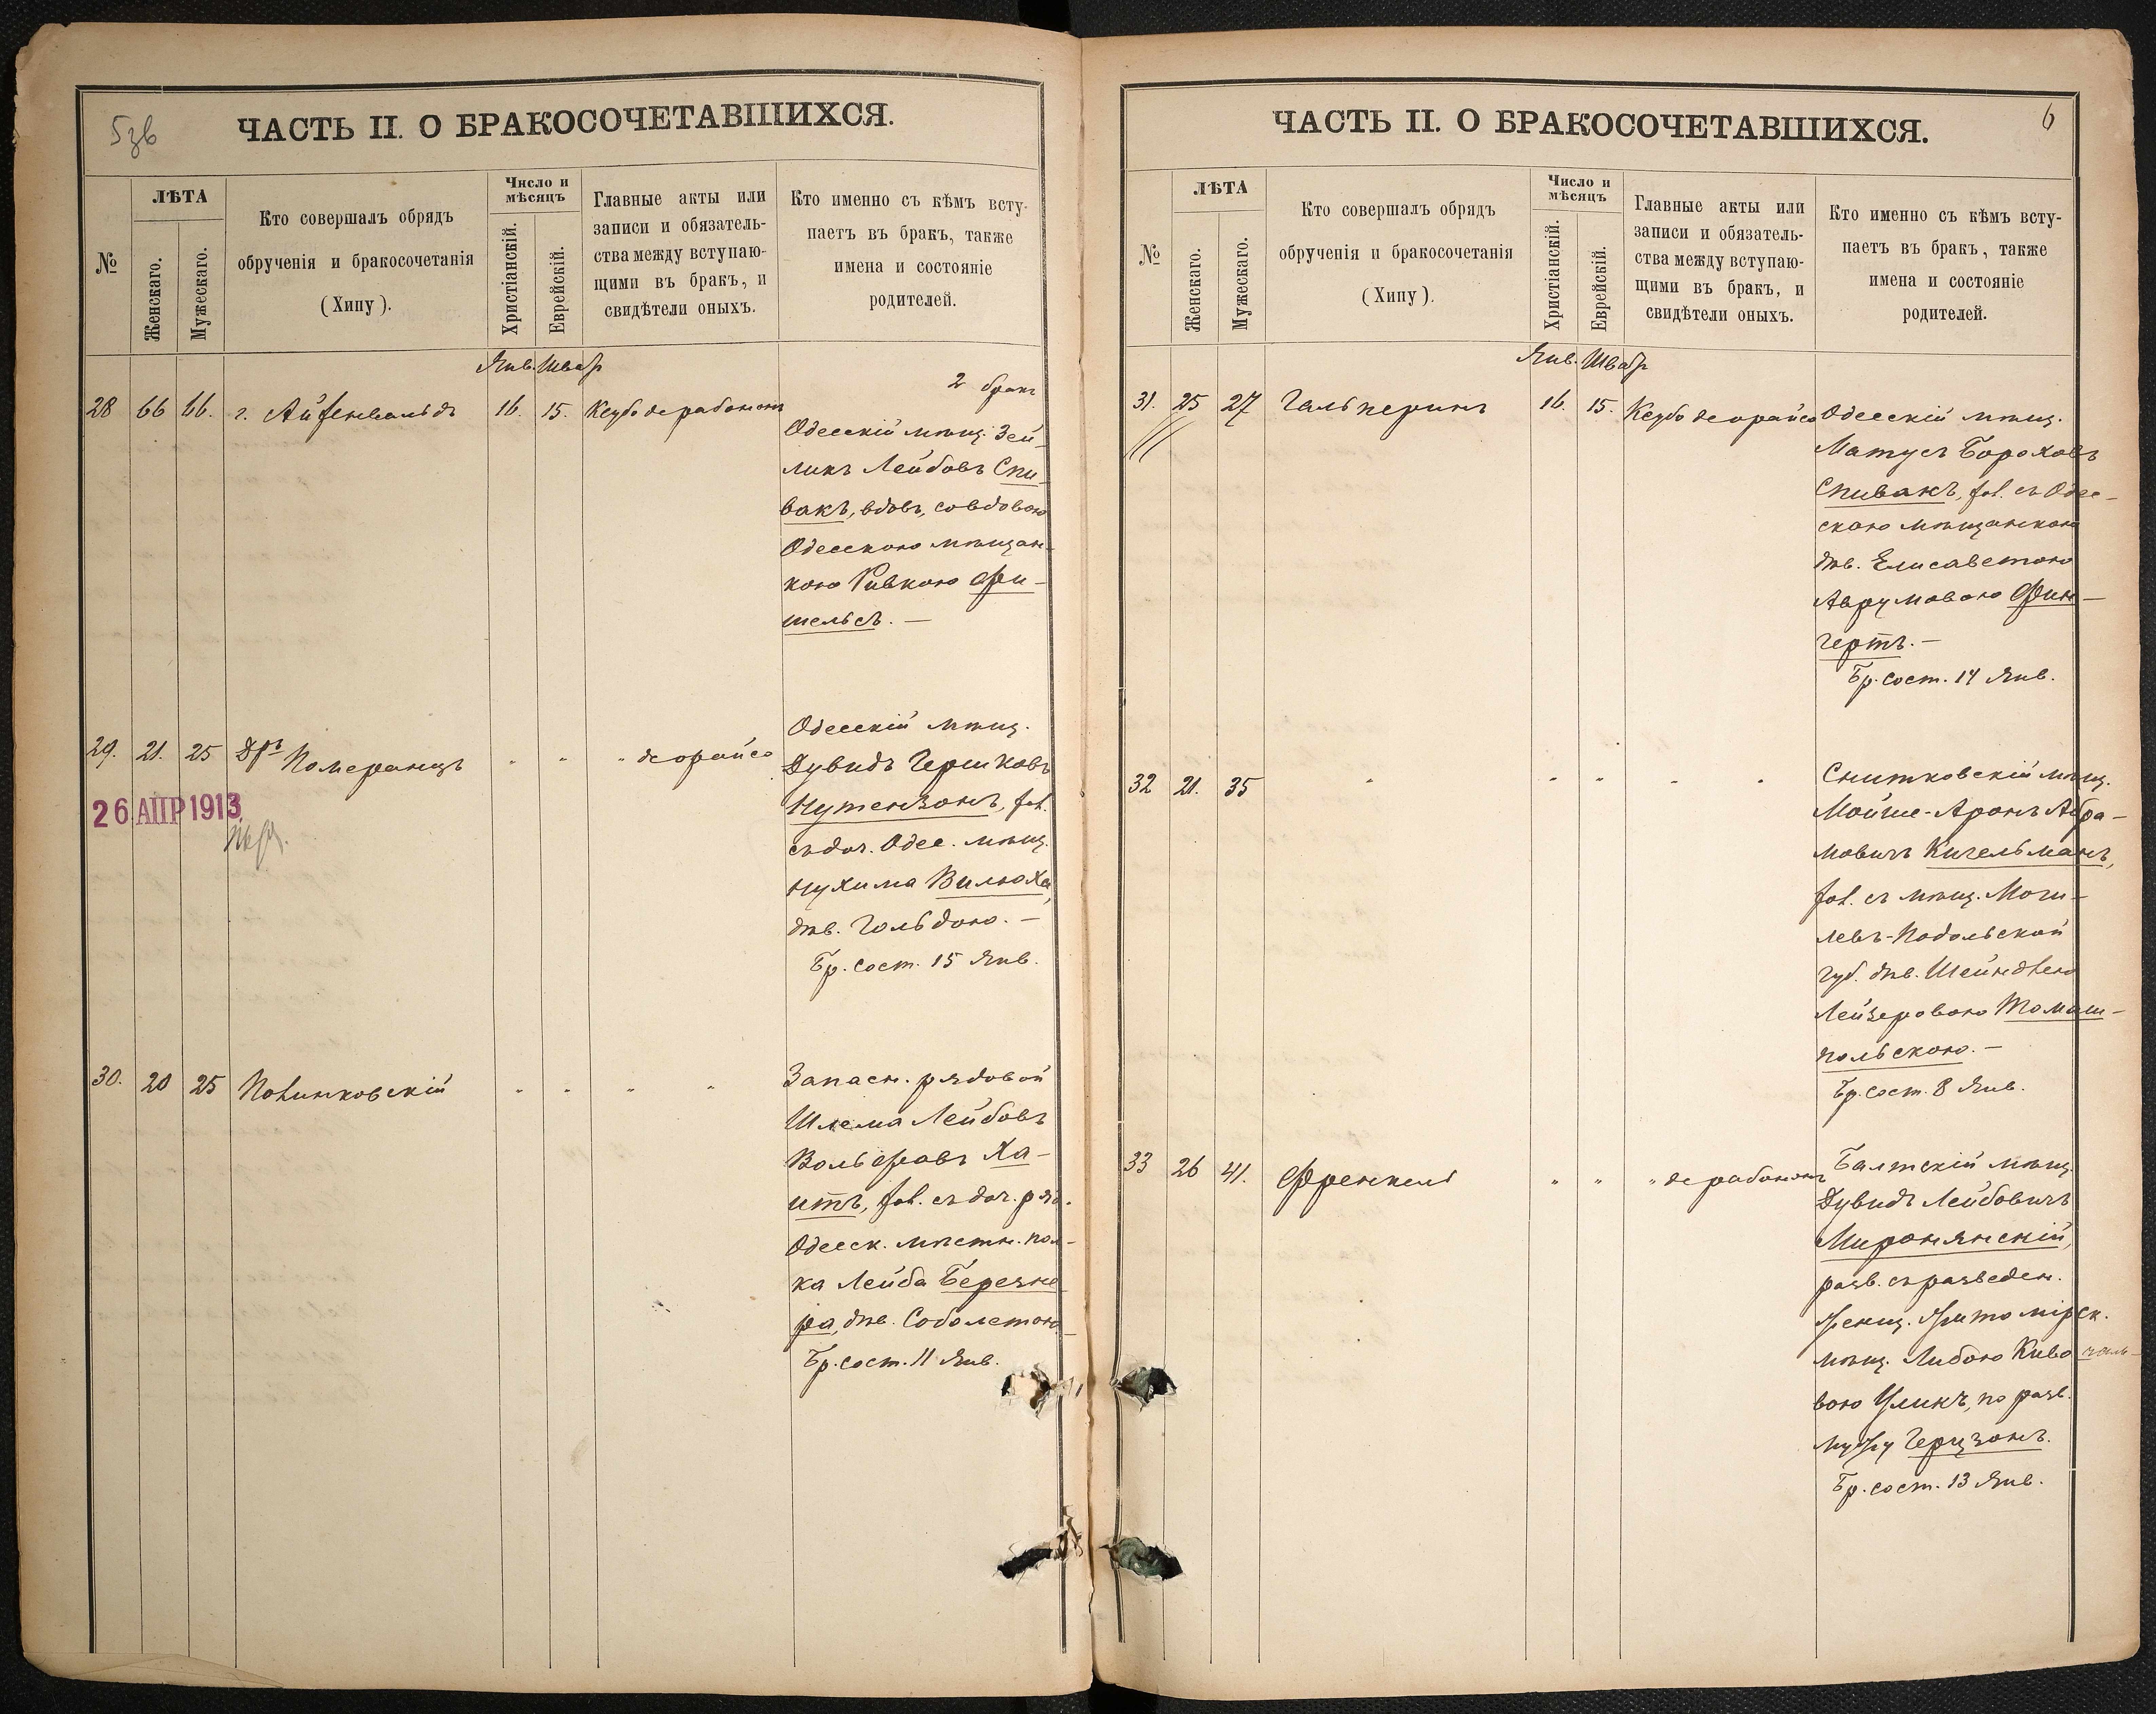 5 зв
ЧАСТЬ II. О БРАКОСОЧЕТАВШИХСЯ.
№
ЛѢТА
Женскаго.
Мужескаго.
Кто совершалъ обрядъ
обрученія и бракосочетанія
(Хипу).
Число и
мѣсяцъ
Христіанскій.
Еврейскій.
Главные акты или
записи и обязатель-
ства между вступаю-
щими въ бракъ, и
свидѣтели оныхъ.
Кто именно съ кѣмъ всту-
паетъ въ бракъ, также
имена и состояніе
родителей.
Янв. Шват
28 66 66. г. Айзенвальдъ 16. 15. Ксубо дерабонон
2 бракъ
Одесскій мѣщ. Зей-
ликъ Лейбовъ Спи-
вакъ, вдовъ, со вдовою
Одесскою мѣщан-
кою Ривкою Фи-
шельсъ. —
29. 21. 25 Дръ Померанцъ " " " деорайсо
26 АПР 1913
Одесскій мѣщ.
Дувидъ Гершковъ
Нутензонъ, хол.
съ доч. Одес. мѣщ.
Нухима Вилюха,
дѣв. Гольдою. —
Бр. сост. 15 Янв.
30. 20 25 Повинковскій " " " "
Запасн. рядовой
Шлема Лейбовъ
Вольфовъ Ха-
итъ, хол. съ доч. ряд.
Одесск. мѣстн. пол-
ка Лейба Березне-
ра, дѣв. Соболетою
Бр. сост. 11 Янв.
6
ЧАСТЬ II. О БРАКОСОЧЕТАВШИХСЯ.
№
ЛѢТА
Женскаго.
Мужескаго.
Кто совершалъ обрядъ
обрученія и бракосочетанія
(Хипу).
Число и
мѣсяцъ
Христіанскій.
Еврейскій.
Главные акты или
записи и обязатель-
ства между вступаю-
щими въ бракъ, и
свидѣтели оныхъ.
Кто именно съ кѣмъ всту-
паетъ въ бракъ, также
имена и состояніе
родителей.
Янв. Шват
31. 25 27 Гальперинъ 16. 15. Ксубо деорайсо
Одесскій мѣщ.
Матусъ Бороховъ
Спивакъ, хол. съ Одес-
скою мѣщанкою
дѣв. Елисаветою
Аврумовою Фин-
гертъ. —
Бр. сост. 14 Янв.
32 21. 35 " " " " "
Снитковскій мѣщ.
Мойше-Аронъ Абра-
мовичъ Кигельманъ,
хол. съ мѣщ. Моги-
левъ-Подольской
губ. дѣв. Шейндлею
Лейзеровою Томаш-
польскою. —
Бр. сост. 8 Янв.
33 26 41. Френкель " " " дерабонон
Балтскій мѣщ.
Дувидъ Лейбовичъ
Миронянскій,
разв. съ разведен.
женщ. Житомірск.
мѣщ. Либою Киво
вою Цликъ, по разв.
мужу Герцзонъ.
Бр. сост. 13 Янв.